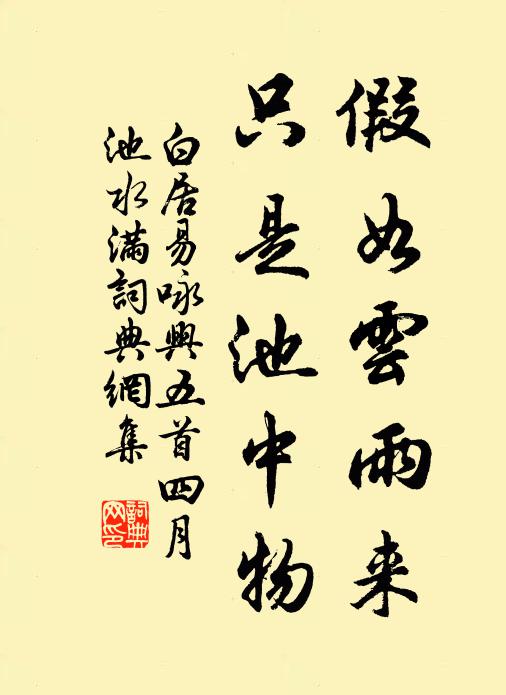 假如雲雨来
只是池中物
白居易咏興五首四月
池水滿詞典網集
詞典
网印